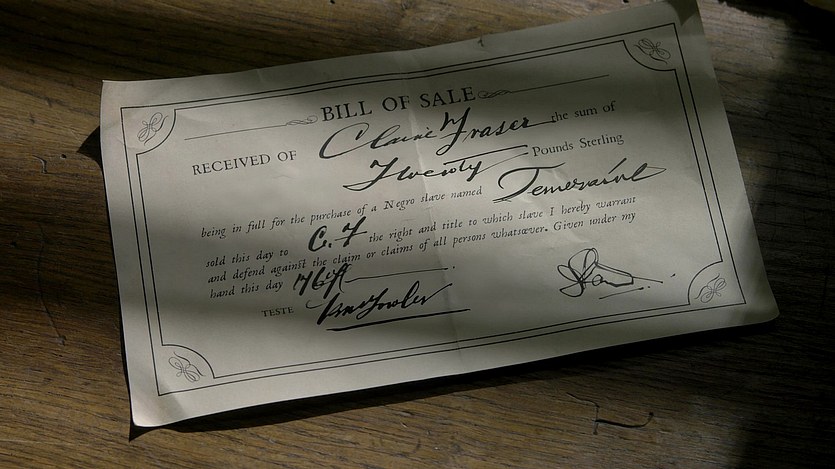 BILL OF SALE
RECEIVED OF Claire Fraser the sum of
Twenty Pounds Sterling
being in full for the purchase of a Negro slave named Temeraire
sold this day to C.F the right and title to which slave I hereby warrant
and defend against the claim or claims of all persons whatsœver. Given under my
hand this day
TESTE